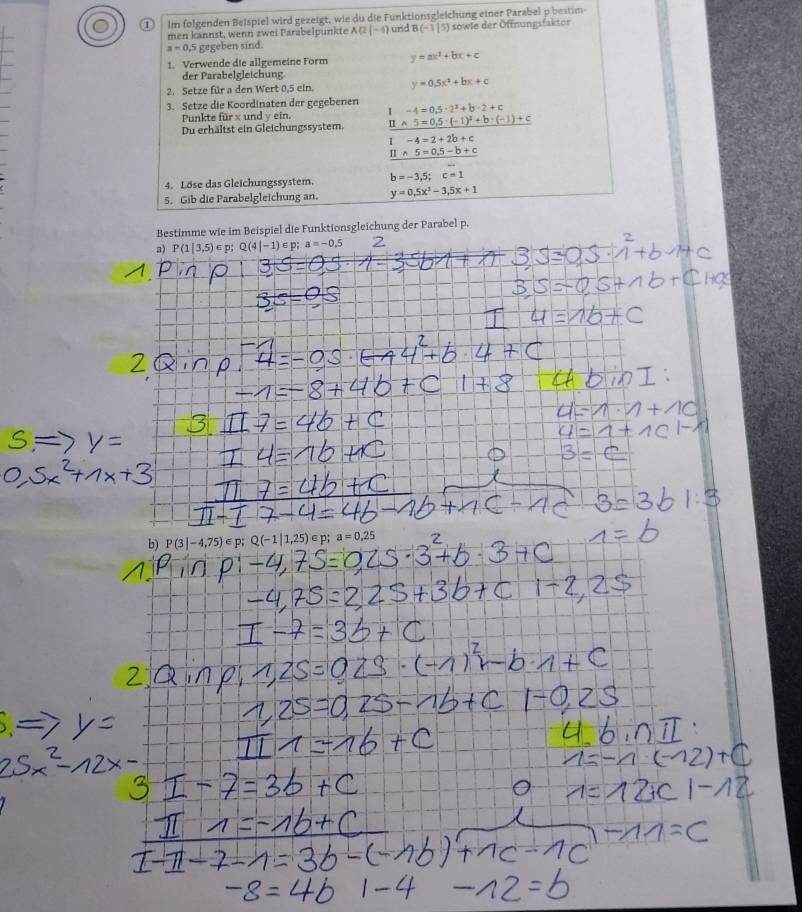 1 Im folgenden Beispiel wird gezeigt, wie du die Funktionsgleichung einer Parabel p bestim-
men kannst, wenn zwei Parabelpunkte A(2|−4) und B(−1|5) sowie der Öffnungsfaktor
a = 0,5 gegeben sind.
1. Verwende die allgemeine Form y = ax² + bx + c
der Parabelgleichung.
2. Setze für a den Wert 0,5 ein. y = 0,5x² + bx + c
3. Setze die Koordinaten der gegebenen
Punkte für x und y ein. I −4 = 0,5 · 2² + b · 2 + c
Du erhältst ein Gleichungssystem. II ∧ 5 = 0,5 · (−1)² + b · (−1) + c
I −4 = 2 + 2b + c
II ∧ 5 = 0,5 − b + c
4. Löse das Gleichungssystem. b = −3,5; c = 1
5. Gib die Parabelgleichung an. y = 0,5x² − 3,5x + 1
Bestimme wie im Beispiel die Funktionsgleichung der Parabel p.
a) P(1|3,5) ∈ p; Q(4|−1) ∈ p; a = −0,5
1. P in p: 3,5=0,5·1²+b·1+c
3,5=-0,5+1b+c |+0,5
I 4=1b+c
2. Q in p: -1=-0,5· 4²+b·4+c
-1=-8+4b+c |+8
4. b in I:
3. II 7=4b+c
4=1·1+1c
I 4=1b+1c
4=1+1c |-1
3=c
II 7=4b+c
0
II-I 7-4=4b-1b+1c-1c 3=3b |:3
1=b
5. => y=
0,5x²+1x+3
b) P(3|−4,75) ∈ p; Q(−1|1,25) ∈ p; a = 0,25
1. P in p: -4,75=0,25·3²+b·3+c
-4,75=2,25+3b+c |-2,25
I -7=3b+c
2. Q in p: 1,25=0,25·(-1)²-b·1+c
1,25=0,25-1b+c |-0,25
II 1=-1b+c
4. b in II:
1=-1·(-12)+c
3 I -7=3b+c
0 1=12+c |-12
II 1=-1b+c
-11=c
I-II -7-1=3b-(-1b)+1c-1c
-8=4b |-4 -12=b
5. => y=
25x²-12x-